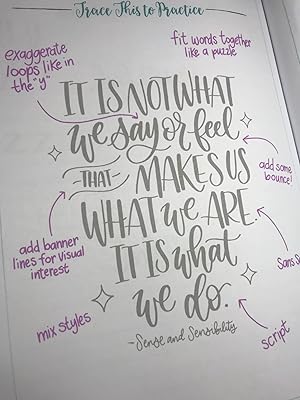 Trace This to Practice
exaggerate
loops like in
the "y"
fit words together
like a puzzle
IT IS NOT WHAT
we say or feel
-THAT- MAKES US
WHAT we ARE.
IT IS what
we do.
-Sense and Sensibility
add some
bounce!
add banner
lines for visual
interest
Sans
mix styles
script